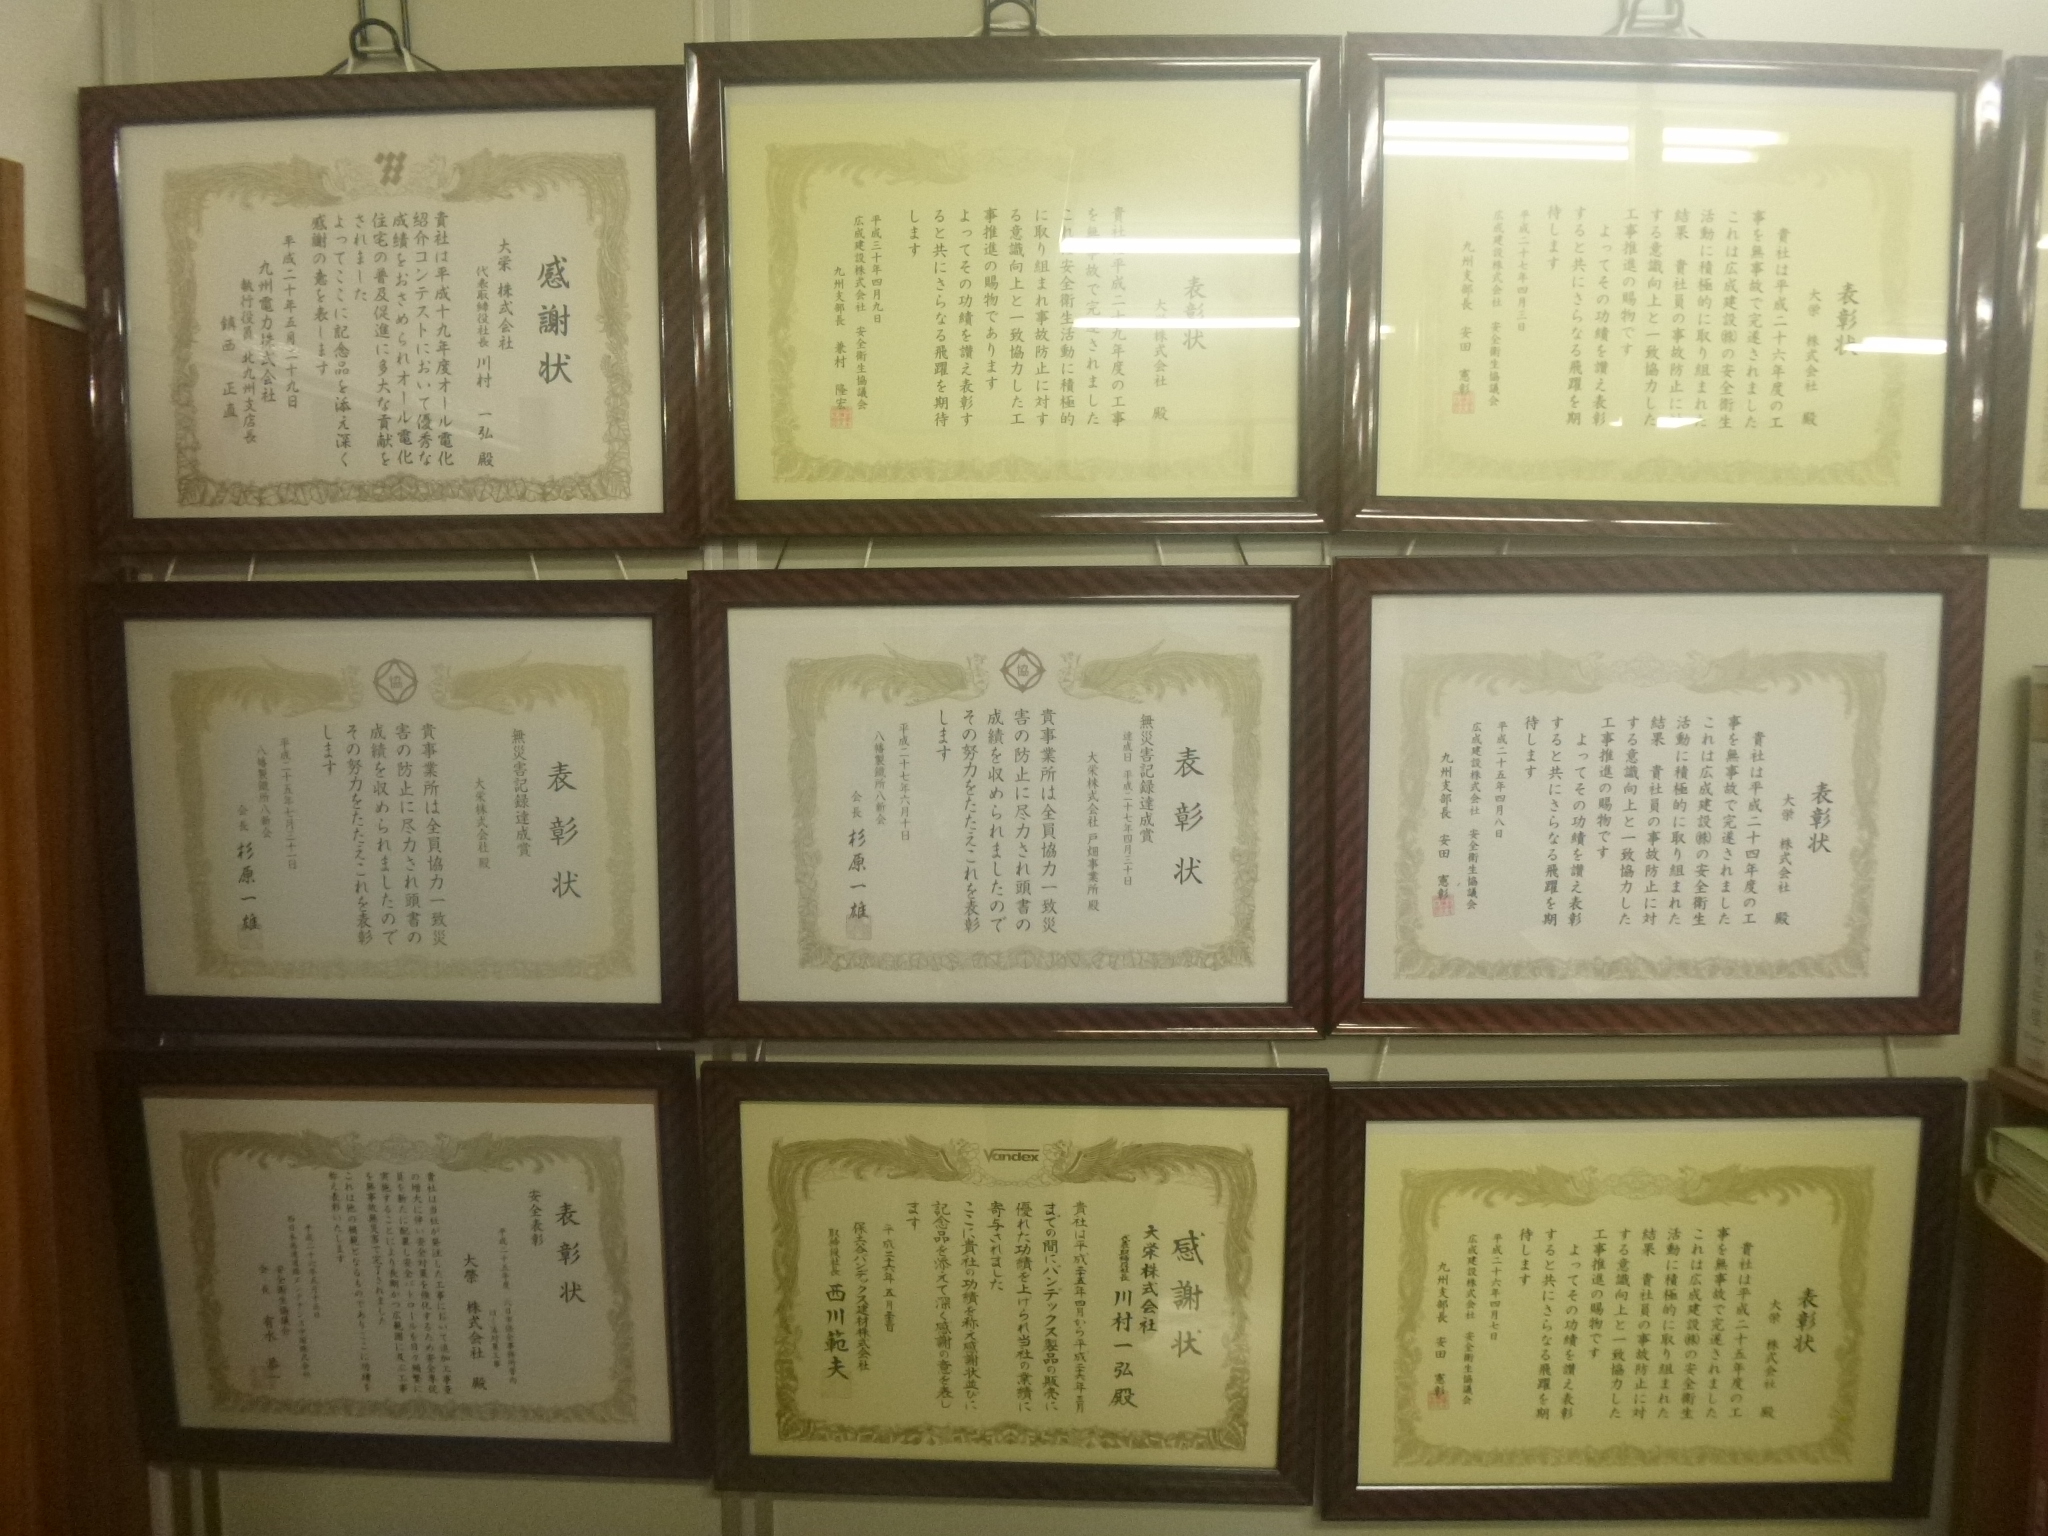 感謝状
大栄 株式会社
代表取締役社長 川村 一弘 殿
貴社は平成十九年度オール電化
紹介コンテストにおいて優秀な
成績をおさめられオール電化
住宅の普及促進に多大な貢献を
されました
よってここに記念品を添え深く
感謝の意を表します
平成二十年五月二十九日
九州電力株式会社
執行役員 北九州支店長
鎮西 正直
表彰状
大栄株式会社 殿
貴社は平成二十九年度の工事
を無事故で完遂されました
これは安全衛生活動に積極的
に取り組まれ事故防止に対す
る意識向上と一致協力した工
事推進の賜物であります
よってその功績を讃え表彰す
ると共にさらなる飛躍を期待
します
平成三十年四月九日
広成建設株式会社 安全衛生協議会
九州支部長 兼村 隆宏
表彰状
大栄 株式会社 殿
貴社は平成二十六年度の工
事を無事故で完遂されました
これは広成建設㈱の安全衛生
活動に積極的に取り組まれた
結果 貴社員の事故防止に対
する意識向上と一致協力した
工事推進の賜物です
よってその功績を讃え表彰
すると共にさらなる飛躍を期
待します
平成二十七年四月三日
広成建設株式会社 安全衛生協議会
九州支部長 安田 憲彰
協
表彰状
無災害記録達成賞
大栄株式会社 殿
貴事業所は全員協力一致災
害の防止に尽力され頭書の
成績を収められましたので
その努力をたたえこれを表彰
します
平成二十五年七月二十一日
八幡製鐵所八新会
会長 杉原一雄
協
表彰状
無災害記録達成賞
達成日 平成二十七年四月三十日
大栄株式会社 戸畑事業所 殿
貴事業所は全員協力一致災
害の防止に尽力され頭書の
成績を収められましたので
その努力をたたえこれを表彰
します
平成二十七年六月十日
八幡製鐵所八新会
会長 杉原一雄
表彰状
大栄 株式会社 殿
貴社は平成二十四年度の工
事を無事故で完遂されました
これは広成建設㈱の安全衛生
活動に積極的に取り組まれた
結果 貴社員の事故防止に対
する意識向上と一致協力した
工事推進の賜物です
よってその功績を讃え表彰
すると共にさらなる飛躍を期
待します
平成二十五年四月八日
広成建設株式会社 安全衛生協議会
九州支部長 安田 憲彰
表彰状
安全表彰
平成二十五年度
大榮 株式会社 殿
貴社は当社が発注した工事において追加工事量
の増大に伴い安全対策を強化するため安全専従
員を新たに配置し安全パトロールを日々頻繁に
実施することにより長期かつ広範囲に及ぶ工事
を無事故無災害で完了されました
これは他の模範となるものでありここに功績を
称え表彰いたします
西日本高速道路メンテナンス九州株式会社
安全衛生協議会
会長 有水 恭一
Vandex
感謝状
大栄株式会社
代表取締役社長 川村一弘 殿
貴社は平成二十五年四月から平成二十六年三月
までの間にバンデックス製品の販売に
優れた功績を上げられ当社の業績に
寄与されました
ここに貴社の功績を称え感謝状並びに
記念品を添えて深く感謝の意を表し
ます
保土谷バンデックス建材株式会社
取締役社長 西川範夫
表彰状
大栄 株式会社 殿
貴社は平成二十五年度の工
事を無事故で完遂されました
これは広成建設㈱の安全衛生
活動に積極的に取り組まれた
結果 貴社員の事故防止に対
する意識向上と一致協力した
工事推進の賜物です
よってその功績を讃え表彰
すると共にさらなる飛躍を期
待します
平成二十六年四月七日
広成建設株式会社 安全衛生協議会
九州支部長 安田 憲彰